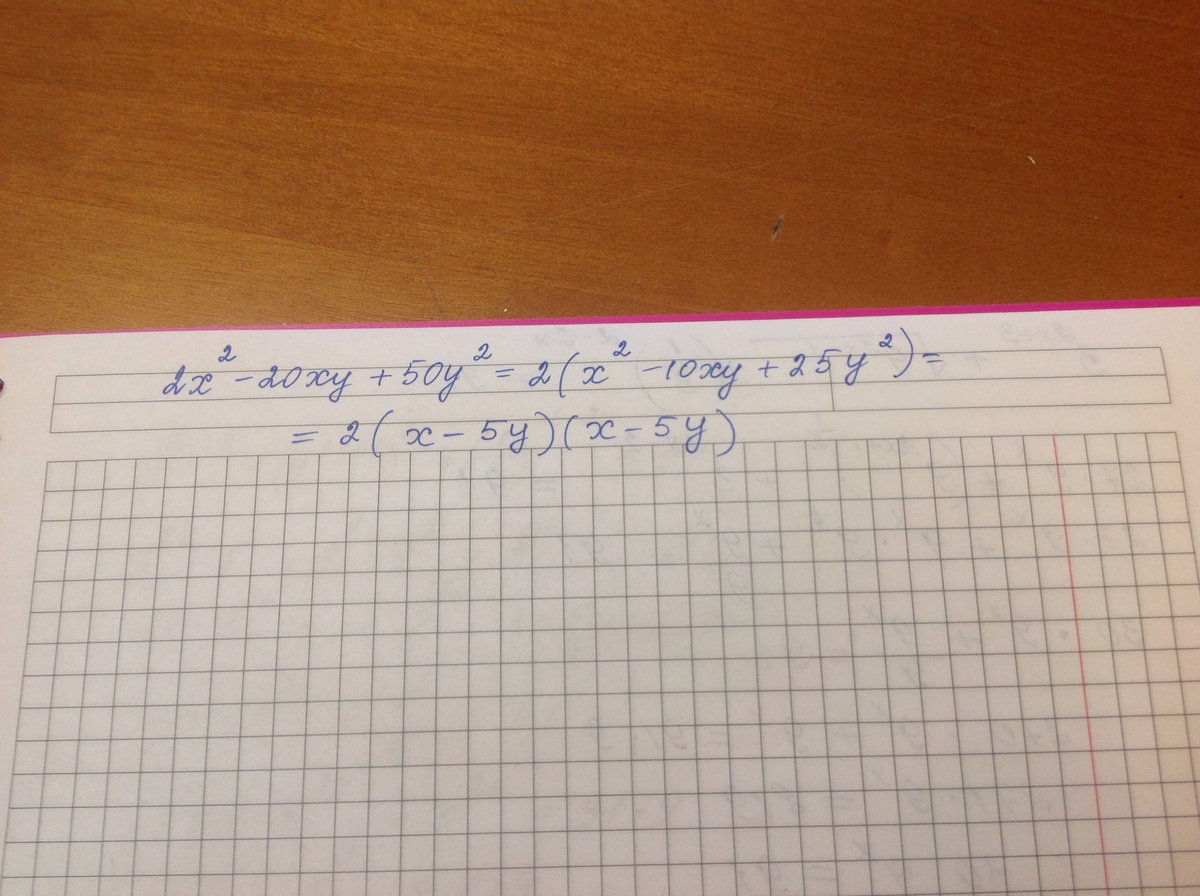 2x² - 20xy + 50y² = 2(x² - 10xy + 25y²) =
= 2(x - 5y)(x - 5y)